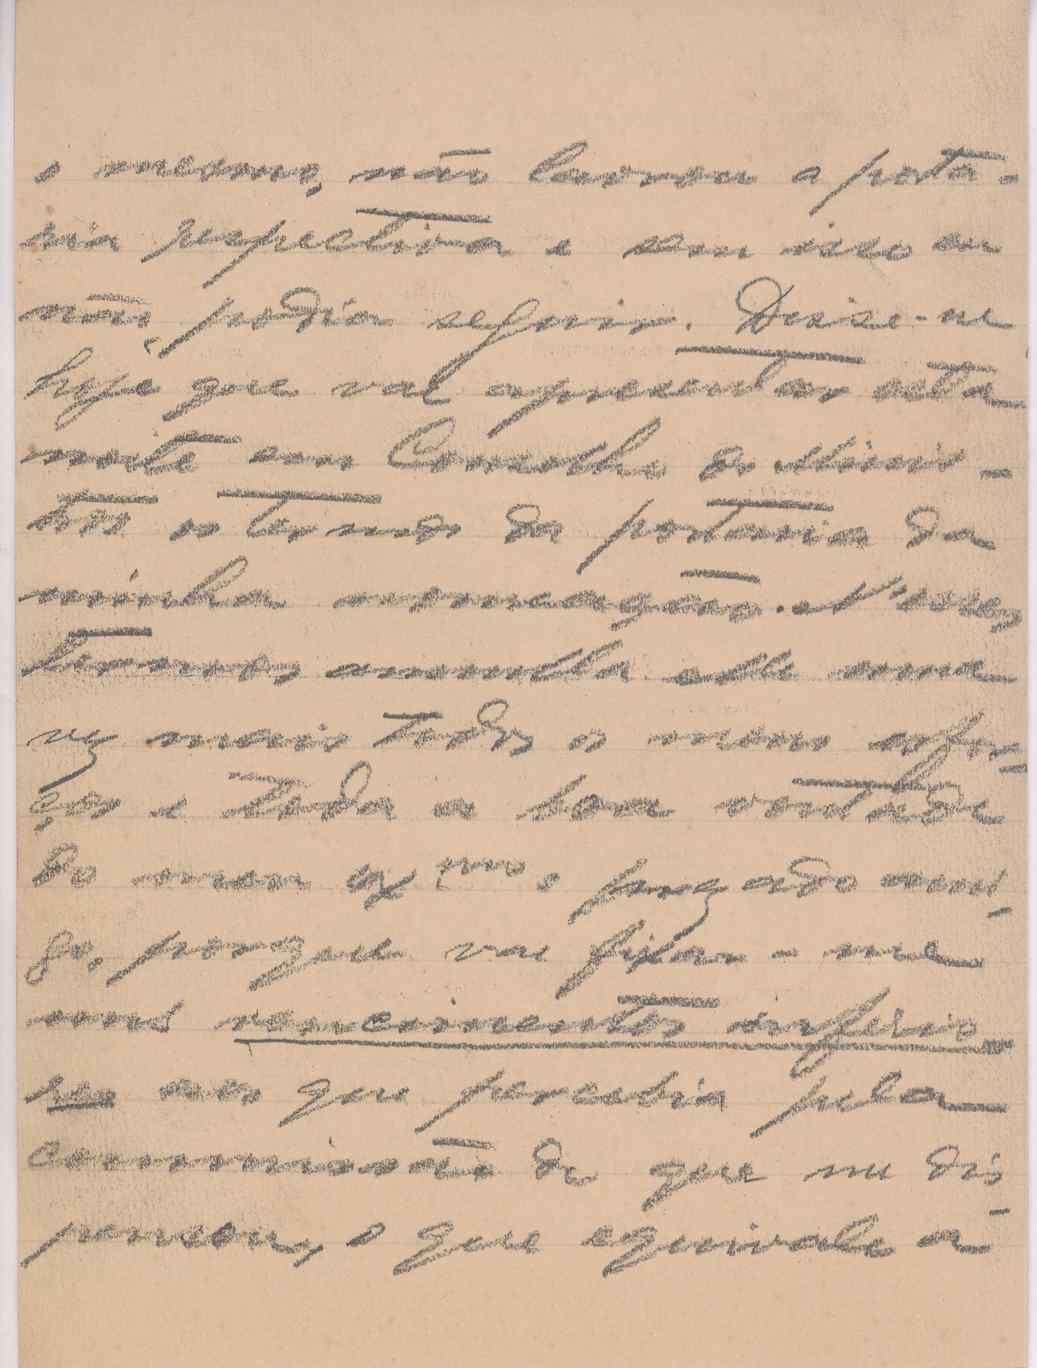 o mesmo, não lavrou a porta-
ria respectiva e sem isso eu
não podia seguir. Disse-me
hoje que vae apresentar esta
noite em Conselho de Minis-
tros os termos da portaria da
minha nomeação. N'esses
termos annulla elle uma
vez mais todos os meus esfor-
ços e toda a boa vontade
do meu exmo e prezado ami-
go, porque vae fixar-me
uns vencimentos inferio
res aos que percebia pela
commissão de que me dis-
pensou, o que equivale a